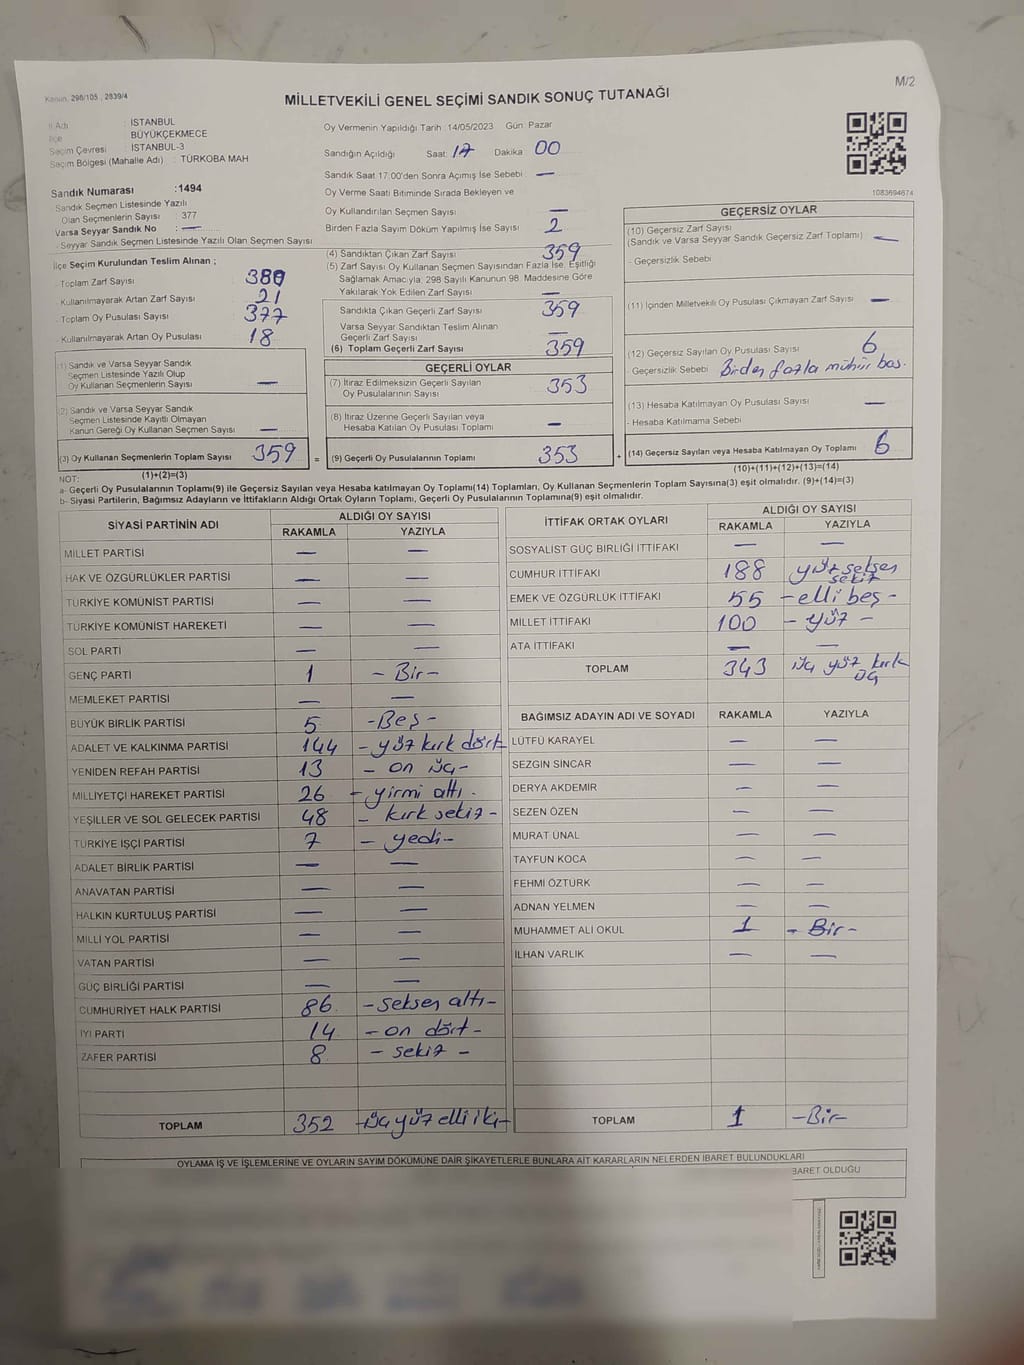 Kanun, 298/105 , 2839/4
M/2
MİLLETVEKİLİ GENEL SEÇİMİ SANDIK SONUÇ TUTANAĞI
İl Adı : İSTANBUL
İlçe : BÜYÜKÇEKMECE
Seçim Çevresi : İSTANBUL-3
Seçim Bölgesi (Mahalle Adı) : TÜRKOBA MAH
Sandık Numarası :1494
Sandık Seçmen Listesinde Yazılı
Olan Seçmenlerin Sayısı : 377
Varsa Seyyar Sandık No : —
- Seyyar Sandık Seçmen Listesinde Yazılı Olan Seçmen Sayısı
İlçe Seçim Kurulundan Teslim Alınan ;
- Toplam Zarf Sayısı 380
- Kullanılmayarak Artan Zarf Sayısı 21
- Toplam Oy Pusulası Sayısı 377
- Kullanılmayarak Artan Oy Pusulası 18
(1) Sandık ve Varsa Seyyar Sandık
Seçmen Listesinde Yazılı Olup
Oy Kullanan Seçmenlerin Sayısı —
(2) Sandık ve Varsa Seyyar Sandık
Seçmen Listesinde Kayıtlı Olmayan
Kanun Gereği Oy Kullanan Seçmen Sayısı —
(3) Oy Kullanan Seçmenlerin Toplam Sayısı 359
(1)+(2)=(3)
Oy Vermenin Yapıldığı Tarih :14/05/2023 Gün: Pazar
Sandığın Açıldığı Saat: 17 Dakika 00
Sandık Saat 17:00'den Sonra Açımış İse Sebebi —
Oy Verme Saati Bitiminde Sırada Bekleyen ve
Oy Kullandırılan Seçmen Sayısı —
Birden Fazla Sayım Döküm Yapılmış İse Sayısı 2
(4) Sandıktan Çıkan Zarf Sayısı 359
(5) Zarf Sayısı Oy Kullanan Seçmen Sayısından Fazla İse, Eşitliği
Sağlamak Amacıyla; 298 Sayılı Kanunun 98. Maddesine Göre
Yakılarak Yok Edilen Zarf Sayısı —
Sandıkta Çıkan Geçerli Zarf Sayısı 359
Varsa Seyyar Sandıktan Teslim Alınan
Geçerli Zarf Sayısı —
(6) Toplam Geçerli Zarf Sayısı 359
GEÇERLİ OYLAR
(7) İtiraz Edilmeksizin Geçerli Sayılan
Oy Pusulalarının Sayısı 353
(8) İtiraz Üzerine Geçerli Sayılan veya
Hesaba Katılan Oy Pusulası Toplamı —
= (9) Geçerli Oy Pusulalarının Toplamı 353
1083694674
GEÇERSİZ OYLAR
(10) Geçersiz Zarf Sayısı
(Sandık ve Varsa Seyyar Sandık Geçersiz Zarf Toplamı) —
- Geçersizlik Sebebi
(11) İçinden Milletvekili Oy Pusulası Çıkmayan Zarf Sayısı —
(12) Geçersiz Sayılan Oy Pusulası Sayısı 6
Geçersizlik Sebebi Birden fazla mühür bas.
(13) Hesaba Katılmayan Oy Pusulası Sayısı —
- Hesaba Katılmama Sebebi
+ (14) Geçersiz Sayılan veya Hesaba Katılmayan Oy Toplamı 6
(10)+(11)+(12)+(13)=(14)
NOT:
a- Geçerli Oy Pusulalarının Toplamı(9) ile Geçersiz Sayılan veya Hesaba katılmayan Oy Toplamı(14) Toplamları, Oy Kullanan Seçmenlerin Toplam Sayısına(3) eşit olmalıdır. (9)+(14)=(3)
b- Siyasi Partilerin, Bağımsız Adayların ve İttifakların Aldığı Ortak Oyların Toplamı, Geçerli Oy Pusulalarının Toplamına(9) eşit olmalıdır.
SİYASİ PARTİNİN ADI ALDIĞI OY SAYISI
RAKAMLA YAZIYLA
MİLLET PARTİSİ — —
HAK VE ÖZGÜRLÜKLER PARTİSİ — —
TÜRKİYE KOMÜNİST PARTİSİ — —
TÜRKİYE KOMÜNİST HAREKETİ — —
SOL PARTİ — —
GENÇ PARTİ 1 - Bir -
MEMLEKET PARTİSİ — —
BÜYÜK BİRLİK PARTİSİ 5 - Beş -
ADALET VE KALKINMA PARTİSİ 144 - yüz kırk dört
YENİDEN REFAH PARTİSİ 13 - on üç -
MİLLİYETÇİ HAREKET PARTİSİ 26 - yirmi altı -
YEŞİLLER VE SOL GELECEK PARTİSİ 48 - kırk sekiz -
TÜRKİYE İŞÇİ PARTİSİ 7 - yedi -
ADALET BİRLİK PARTİSİ — —
ANAVATAN PARTİSİ — —
HALKIN KURTULUŞ PARTİSİ — —
MİLLİ YOL PARTİSİ — —
VATAN PARTİSİ — —
GÜÇ BİRLİĞİ PARTİSİ — —
CUMHURİYET HALK PARTİSİ 86 - seksen altı -
İYİ PARTİ 14 - on dört -
ZAFER PARTİSİ 8 - sekiz -
TOPLAM 352 - üç yüz elli iki -
İTTİFAK ORTAK OYLARI ALDIĞI OY SAYISI
RAKAMLA YAZIYLA
SOSYALİST GÜÇ BİRLİĞİ İTTİFAKI — —
CUMHUR İTTİFAKI 188 yüz seksen sekiz
EMEK VE ÖZGÜRLÜK İTTİFAKI 55 - elli beş -
MİLLET İTTİFAKI 100 - yüz -
ATA İTTİFAKI — —
TOPLAM 343 üç yüz kırk üç
BAĞIMSIZ ADAYIN ADI VE SOYADI RAKAMLA YAZIYLA
LÜTFÜ KARAYEL — —
SEZGİN SİNCAR — —
DERYA AKDEMİR — —
SEZEN ÖZEN — —
MURAT ÜNAL — —
TAYFUN KOCA — —
FEHMİ ÖZTÜRK — —
ADNAN YELMEN — —
MUHAMMET ALİ OKUL 1 - Bir -
İLHAN VARLIK — —
TOPLAM 1 - Bir -
OYLAMA İŞ VE İŞLEMLERİNE VE OYLARIN SAYIM DÖKÜMÜNE DAİR ŞİKAYETLERLE BUNLARA AİT KARARLARIN NELERDEN İBARET BULUNDUKLARI
İBARET OLDUĞU